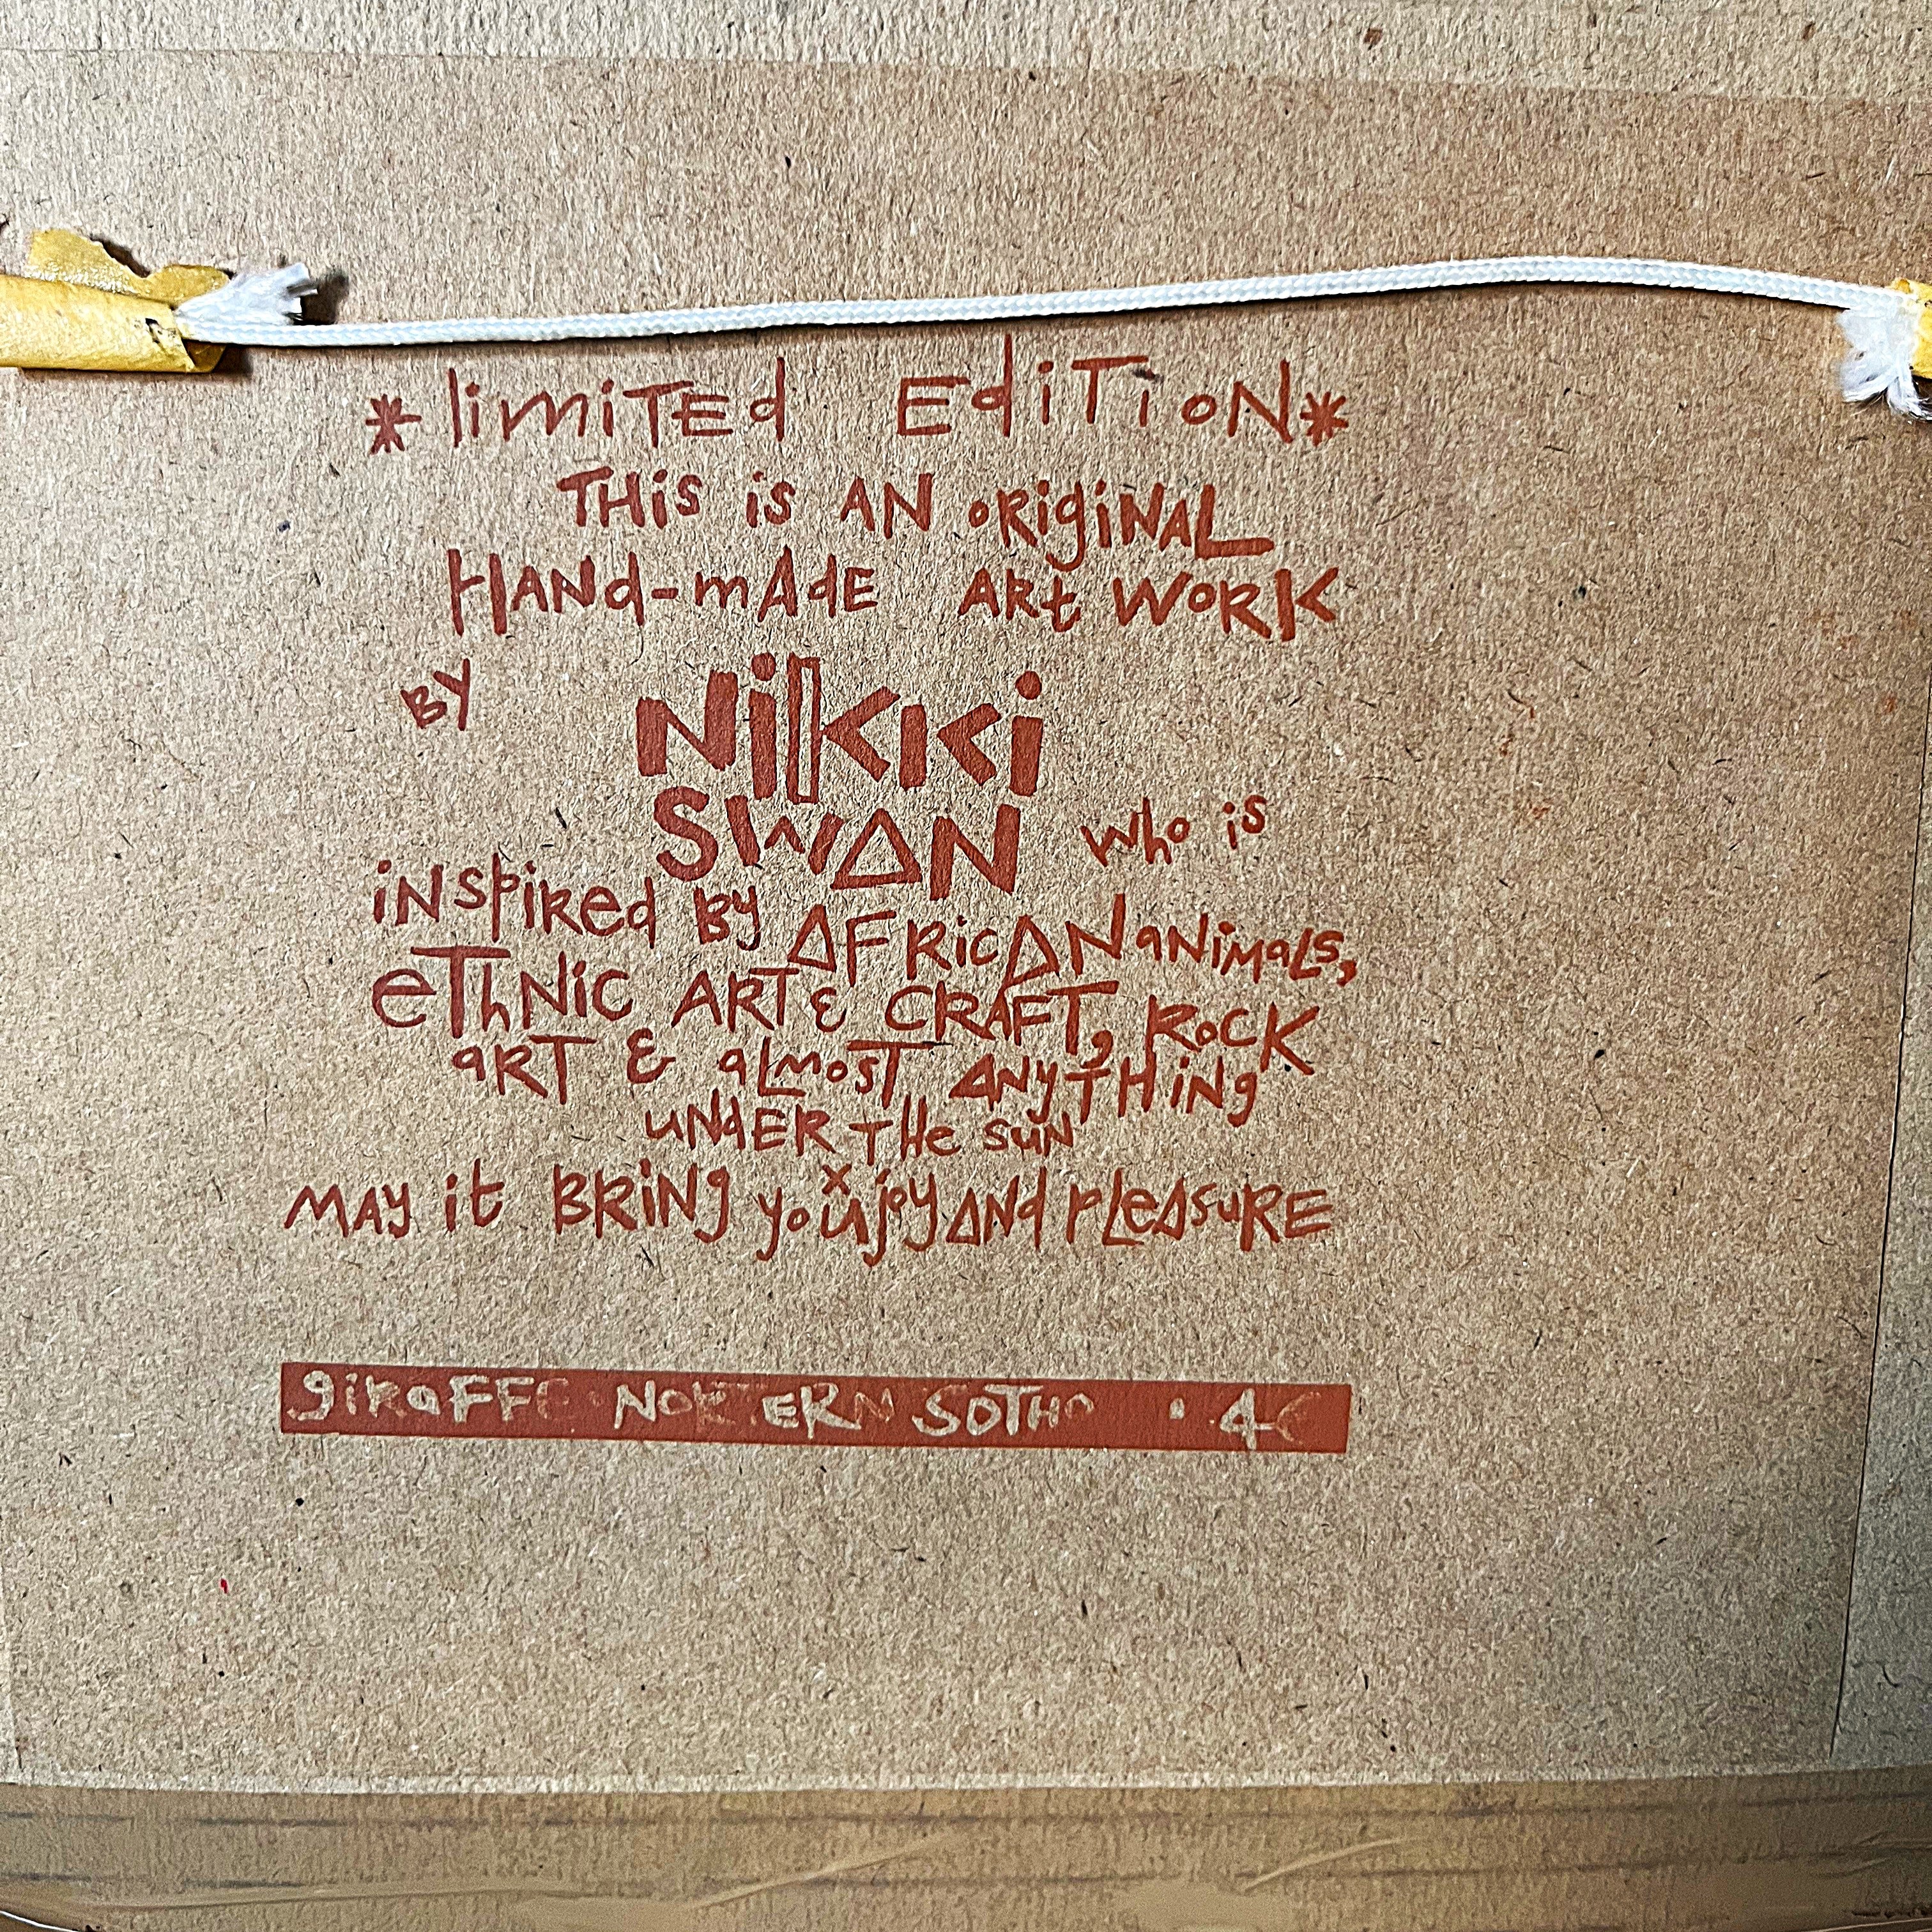 *limiTEd EdiTioN*
THis is AN oRigiNAL
HANd-mAdE ARt WoRK
BY NiKKi
SWAN who is
iNspiRed By AFRicAN aNimaLs,
eThNic ART & CRAFT, RocK
aRT & aLmosT ANyTHiNg
uNdER THe suN
MAy it BRiNg you joy ANd PLeAsuRE
giRaFFE NORTERN SOTHO